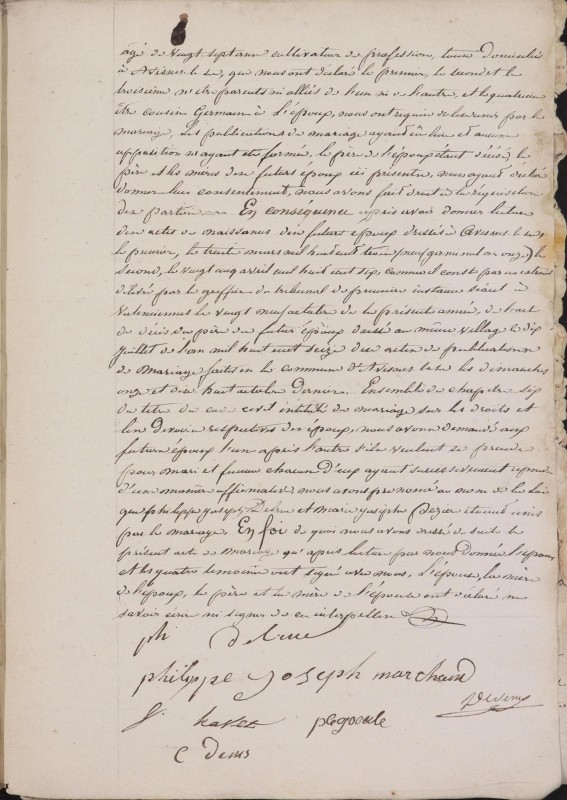 âgé de vingt sept ans cultivateur de profession, tous domiciliés
à Avesnes le sec, qui nous ont déclaré le premier, le second et le
troisième n'être parents ni alliés de l'un ni de l'autre, et le quatrième
être cousin Germain à l'époux, nous ont requis de les unir par le
mariage, les publications de mariage ayant eu lieu et aucune
opposition n'ayant été formée, le père de l'époux étant décédé, le
père et les mères des futurs époux ici présents, nous ayant déclaré
donner leur consentement, nous avons fait droit à la réquisition
des parties. En conséquence après avoir donné lecture
des actes de naissances des futurs époux dressés à Avesnes le sec,
le premier, le trente mars mil huit cent trois (neuf germinal an onze) le
second, le vingt cinq avril mil huit cent six, comme il conste par un extrait
délivré par le greffier du tribunal de première instance séant à
Valenciennes le vingt neuf octobre de la présente année, de l'acte
de décès du père du futur époux dressé au même village le dix
juillet de l'an mil huit cent seize des actes de publications
de mariage faites en la commune d'Avesnes le sec les dimanches
onze et dix huit octobre dernier. Ensemble du chapitre six
du titre du code civil intitulé du mariage sur les droits et
les devoirs respectifs des époux, nous avons demandé aux
futurs époux l'un après l'autre s'ils veulent se prendre
pour mari et femme chacun d'eux ayant successivement répondu
d'une manière affirmative nous avons prononcé au nom de la loi
que philippe joseph et Marie joseph étaient unis
par le mariage. En foi de quoi nous avons dressé de suite le
présent acte de mariage qu'après lecture par nous donnée l'époux
et les quatre témoins ont signé avec nous, l'épouse, la mère
de l'époux, le père et la mère de l'épouse ont déclaré ne
savoir écrire ni signer de ce interpellés
ph
philippe Joseph marchand
havez
C Denis